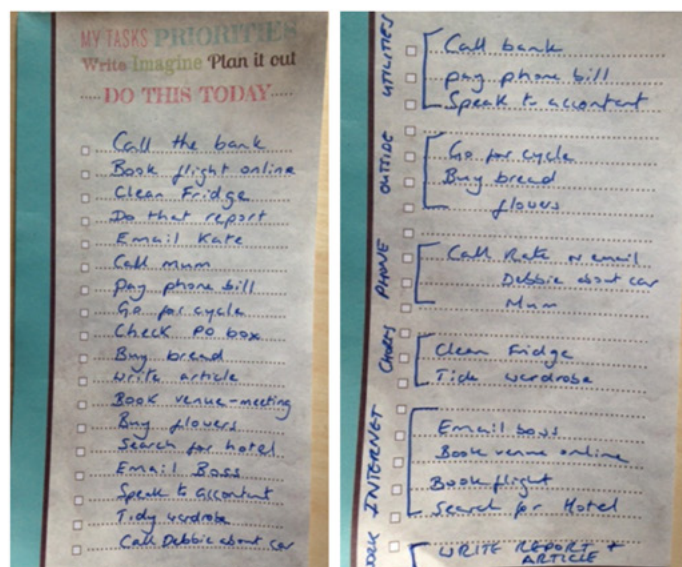 MY TASKS PRIORITIES
Write Imagine Plan it out
DO THIS TODAY
Call the bank
Book flight online
Clean Fridge
Do that report
Email Kate
Call mum
pay phone bill
Go for cycle
Check PO box
Buy bread
write article
Book venue-meeting
Buy flowers
Search for hotel
Email Boss
Speak to accontant
Tidy wardrobe
Call Debbie about car
UTILITIES
Call bank
pay phone bill
Speak to accontant
OUTSIDE
Go for cycle
Buy bread
flowers
PHONE
Call Kate or email
Debbie about car
Mum
CHORES
Clean Fridge
Tide wardrobe
INTERNET
Email boss
Book venue online
Book flight
Search for Hotel
WORK
WRITE REPORT +
ARTICLE